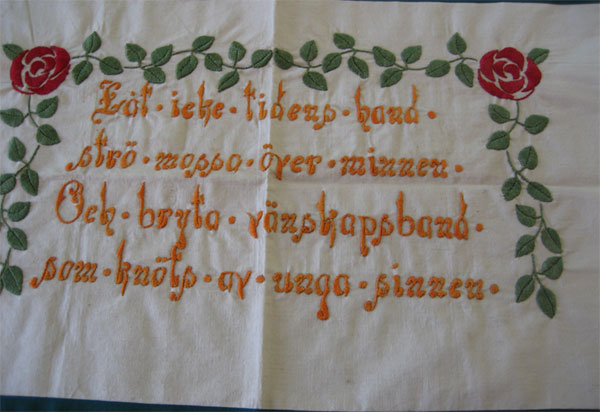 Låt · icke · tidens · hand ·
strö · mossa · över · minnen ·
Och · bryta · vänskapsband ·
som · knöts · av · unga · sinnen ·